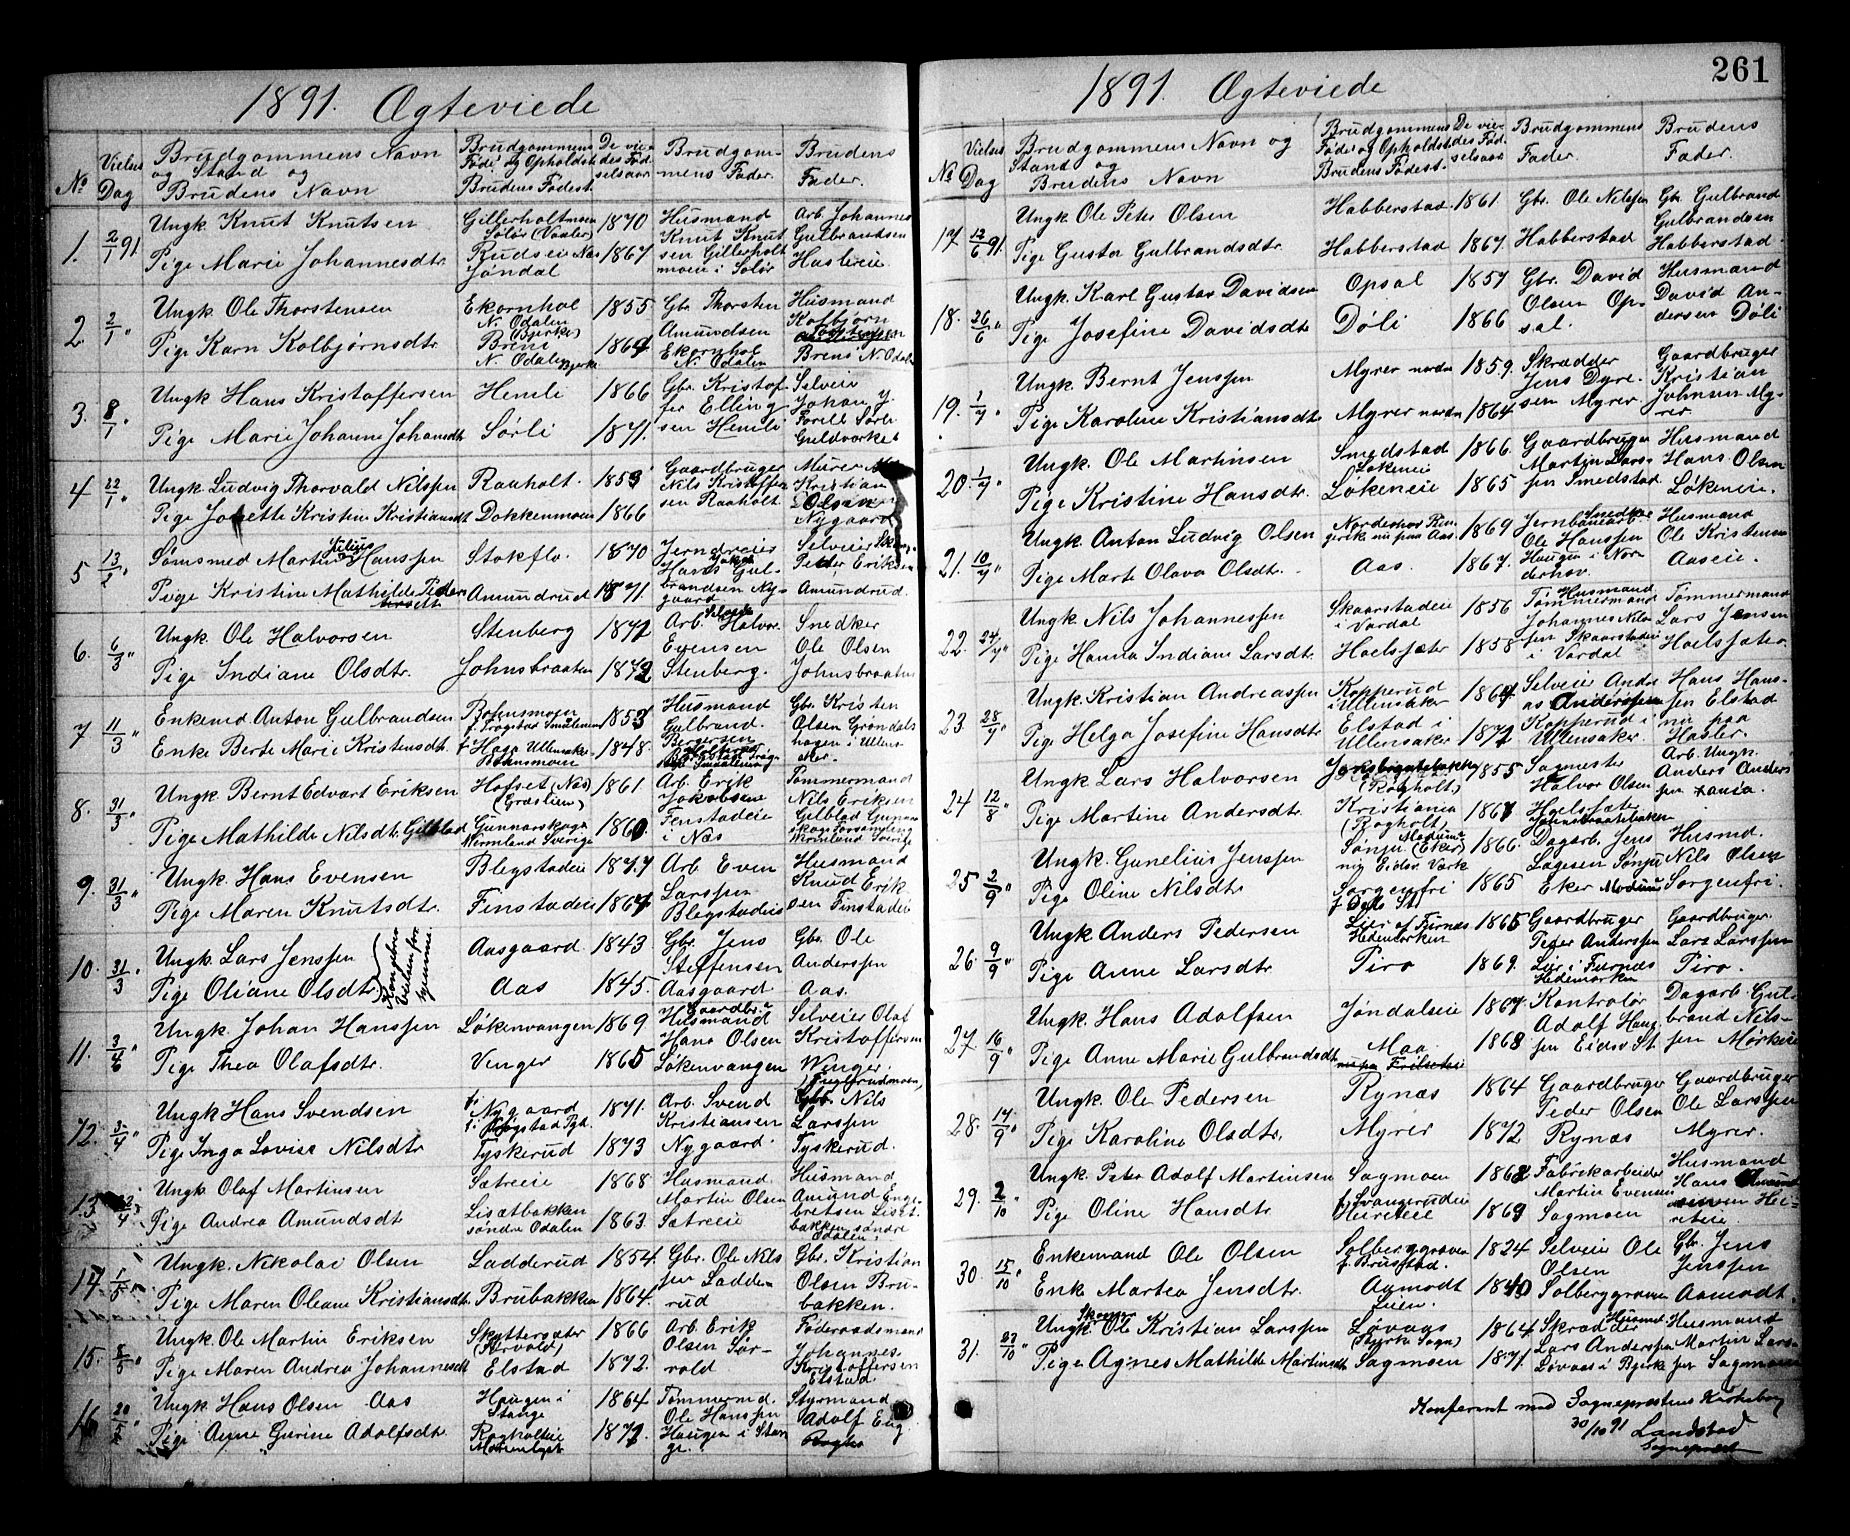 1891. Ægteviede
No
Vielses Dag
Brudgommens Navn og Stand og Brudens Navn
Brudgommens Føde og Opholdst Brudens Fødest.
De viedes Fødselsaar
Brudgommens Fader.
Brudens Fader.
1. 2/1 91
Ungk. Knut Knutsen
Gillerholtmoen Solør (Vaaler)
1870
Husmand Knut Knutsen Gillerholtmoen i Solør
Arb. Johannes Gulbrandsen Haslieie
Pige Marie Johannesdtr.
Rudseie Næs Jøndal
1867
2. 2/1 "
Ungk. Ole Thorstensen
Ekornhol N. Odalen (Bjerke)
1855
Gbr. Thorsten Amundsen Ekornhol N. Odalen
Husmand Kolbjørn Breni N. Odalen
Pige Karn Kolbjørnsdtr
Breni N. Odalen
1864
3. 8/1 "
Ungk. Hans Kristoffersen
Hemli
1866
Gbr. Kristoffer Ellingsen Hemli
Selveier Johan J. Sørli Guldverket
Pige Marie Johanne Johansdtr
Sørli
1871.
4. 22/1 "
Ungk. Ludvig Thorvald Nilssen
Raaholt.
1859
Gaardbruger Nils Kristoffersen Raaholt.
Murer Kristian Olsen Nygaard
Pige Josette Kristine Kristiansdt
Dokkenmoen
1866
5 13/2 "
Sømsmed Martin Julius Hanssen
Stokflo.
1870
Jerndreier Hans Gulbrandsen Nygaard
Selveier Peder Eriksen Amundrud.
Pige Kristine Mathilde Pedersdtr
Amundrud
1871.
6. 6/3 "
Ungk. Ole Halvorsen
Stenberg
1872
Arb. Halvor Evensen Stenberg.
Snedker Ole Olsen Johnsbraaten
Pige Indiane Olsdtr.
Johnsbraaten
1872
7 11/3 "
Enkemd Anton Gulbrandsen
1853
Husmand Gulbrand
Gbr. Kristen Olsen Grøndalshagen i Ullensaker.
Enke Berte Marie Kristensdt.
f: Haga Ullensaker
1848.
8. 31/3 "
Ungk Bernt Edvart Eriksen
Hofset (Næs)
1861
Arb. Erik Jakobsen Fenstadeie i Næs
Tømmermand Nils Eriksen Gilblad
Pige Mathilde Nilsdtr. Gilblad
Gunnarskog Wermland Sverige
1860.
9. 31/3 "
Ungk. Hans Evensen
Blegstadeie
1877
Arb. Even Larssen Blegstadeie
Husmand Knud Eriksen Finstadeie
Pige Maren Knutsdtr.
Finstadeie
1867
10. 31/3 "
Ungk. Lars Jenssen
Aasgaard.
1843
Gbr. Jens Steffensen Aasgaard
Gbr. Ole Anderssen Aas.
Pige Oliane Olsdtr
Aas
1845.
11. 3/4 "
Ungk. Johan Hanssen
Løkenvangen
1869
Husmand Hans Olsen Løkenvangen
Selveier Olaf Kristoffersen Wenger.
Pige Thea Olafsdtr.
Venger
1865
12. 3/4 "
Ungk Hans Svendsen
Nygaard
1871.
Arb. Svend Kristiansen Nygaard.
Gbr. Nils Larssen Tyskerud.
Pige Inga Lovise Nilsdtr
Tyskerud
1873
13 22/4 "
Ungk Olaf Martinsen
Sætreeie
1868
Husmand Martin Olsen Sætreeie
Husmand Amund Engebretsen Lisetbakken søndre Odalen
Pige Andrea Amundsdt
Lisætbakken søndre Odalen
1863.
14. 1/5 "
Ungk. Nikolai Olsen
Ladderud
1854.
Gbr. Ole Nilssen Ladderud
Gbr. Kristian Olsen Brubakken.
Pige Maren Oleane Kristiansdt.
Brubakken
1864.
15. 8/5 "
Ungk. Ole Martin Eriksen
1866
Arb. Erik Olsen
Føderaadsmand Johannes Kristoffersen Elstad
Pige Maren Andrea Johannesdt
Elstad
1872.
16 20/5 "
Ungk. Hans Olsen Aas
Haugen i Stange
1864
Tømmermd. Ole Hanssen Haugen i Stange.
Styrmand Adolf Eng
Pige Anne Gurine Adolfsdtr.
Ragholteie
1872
261
1891. Ægteviede
No
Vielses Dag
Brudgommens Navn og Stand og Brudens Navn
Brudgommens Føde og Opholdst Brudens Fødest.
De viedes Fødselsaar
Brudgommens Fader.
Brudens Fader.
17. 12/6 91.
Ungk Ole Peter Olsen
Habberstad.
1861.
Gbr. Ole Nilssen Habberstad
Gbr. Gulbrand Gulbrandsen Habberstad.
Pige Gusta Gulbrandsdtr.
Habberstad
1867.
18. 26/6 "
Ungk. Karl Gustav Davidsen
Opsal
1857
Gbr. David Olsen Opsal.
Husmand David Andersen Døli
Pige Josefine Davidsdtr
Døli
1866
19. 1/7 "
Ungk. Bernt Jenssen
Myrer nordre
1859.
Skrædder Jens Dyresen Myrer.
Gaardbruger Kristian Johnsen Myrer
Pige Karoline Kristiansdtr
Myrer nordre
1864
20. 1/7 "
Ungk. Ole Martinsen
Smedstad Løkeneie
1866.
Gaardbruger Martin Larssen Smedstad
Husmand Hans Olsen Løkeneie.
Pige Kristine Hansdtr.
Løkeneie
1865
21. 10/7 "
Ungk. Anton Ludvig Olsen
Norderhov Ringerike nu paa Aas.
1869
Snedker Jernbanearb. Ole Hanssen Haugen i Norderhov.
Husmand Ole Kristensen Aaseie.
Pige Marte Olava Olsdtr.
Aas.
1867.
22. 24/7 "
Ungk. Nils Johannessen
Skaarstadeie i Vardal
1856
Husmand Tømmermand Johannes Nilssen Skaarstadeie i Vardal
Tømmermand Lars Jensen Hoelssæter.
Pige Hanna Indiane Larsdt.
Hoelssæter
1858
23. 28/7 "
Ungk. Kristian Andreassen
Kopperud i Ullensaker
1864
Selveier Andreas Anderssen Kopperud i Ullensaker
Hans Hanssen Elstad nu paa Hasler.
Pige Helga Josefine Hansdtr
Elstad i Ullensaker
1872
24 12/8 "
Ungk Lars Halvorsen
(Ragholt)
1855
Sagmester Halvor Olsen
Arb. Ungk. Anders Anderssen
Pige Martine Andersdtr
Kristiania (Ragholt)
1867
25 2/9 "
Ungk. Gunelius Jenssen
Sønju (Eker) Modum
1866.
Dagarb. Jens Lagesen Sønju Eker Modum
Husmd. Nils Olsen Sorgenfri.
Pige Oline Nilsdtr
Sorgenfri
1865
26. 9/9 "
Ungk Anders Pedersen
Lier af Furnæs Hedemarken
1865
Gaardbruger Peder Anderssen Lier i Furnæs Hedemarken
Gaardbruger. Lars Larssen Piro.
Pige Anne Larsdtr
Piro
1869.
27 16/9 "
Ungk. Hans Adolfsen
Jøndalseie
1867.
Kontrolør Adolf Hanssen Eidsv. St.
Dagarb. Gulbrand Nilssen Mørkeie
Pige Anne Marie Gulbrandsdt
Maa
1868
28. 17/9 "
Ungk. Ole Pedersen
Rynæs
1864
Gaardbruger Peder Olsen Rynæs
Gaardbruger Ole Larssen Myrer.
Pige Karoline Olsdtr.
Myrer
1872
29. 2/10 "
Ungk. Peter Adolf Martinsen
Sagmoen
1868
Fabrikarbeider Martin Evensen Sagmoen
Husmand Hans
Pige Oline Hansdtr
1869
30. 15/10 "
Enkemand Ole Olsen
Solberggraven f. Brustad.
1824
Selveier Ole Olsen Solberggraven
Gbr. Jens Jenssen Aamodt.
Enke Martea Jensdtr.
Aamodt
1840
31. 23/10 "
Ungk Ole Kristian Larssen
Løvaas (Bjerke Sogn)
1864
Skrædder Lars Anderssen Løvaas i Bjerke
Husmand Martin Larssen Sagmoen
Pige Agnes Mathilde Martinsdt
Sagmoen
1871.
Konfereret med Sognepræstens Kirkebog
30/10 91 Landstad
Sognepræst